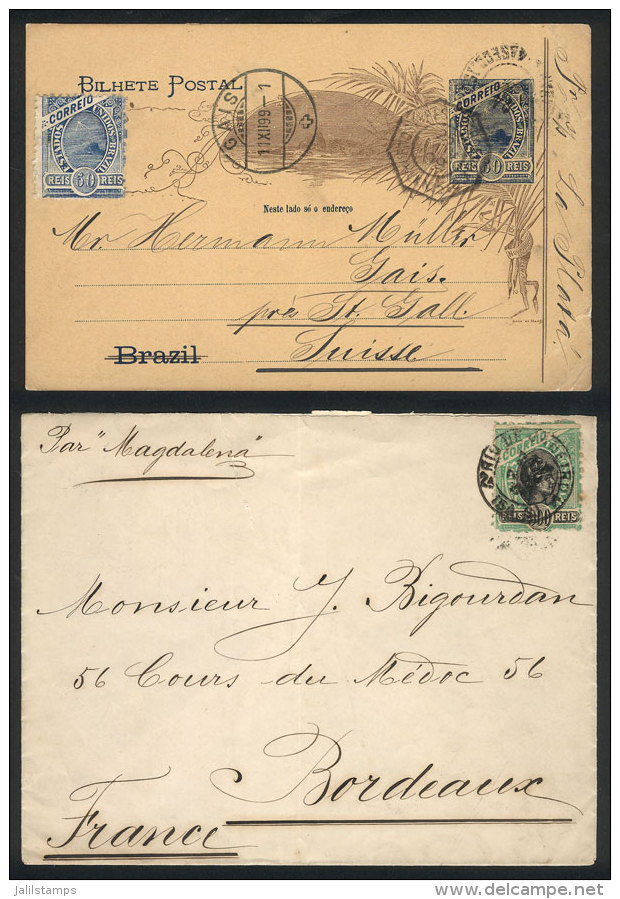 BILHETE POSTAL
CORREIO
ESTADOS UNIDOS BRAZIL
REIS 50 REIS
GAIS
11.XII.99-1
CORREIO
ESTADOS UNIDOS BRAZIL
REIS 50 REIS
Neste lado só o endereço
Mr. Hermann Müller
Gais.
près St. Gall.
Suisse
Brazil
La Plata.
Par "Magdalena"
CORREIO
REIS REIS
Monsieur J. Bigourdan
56 Cours du Médoc 56
Bordeaux
France
jalilstamps
delcampe.net